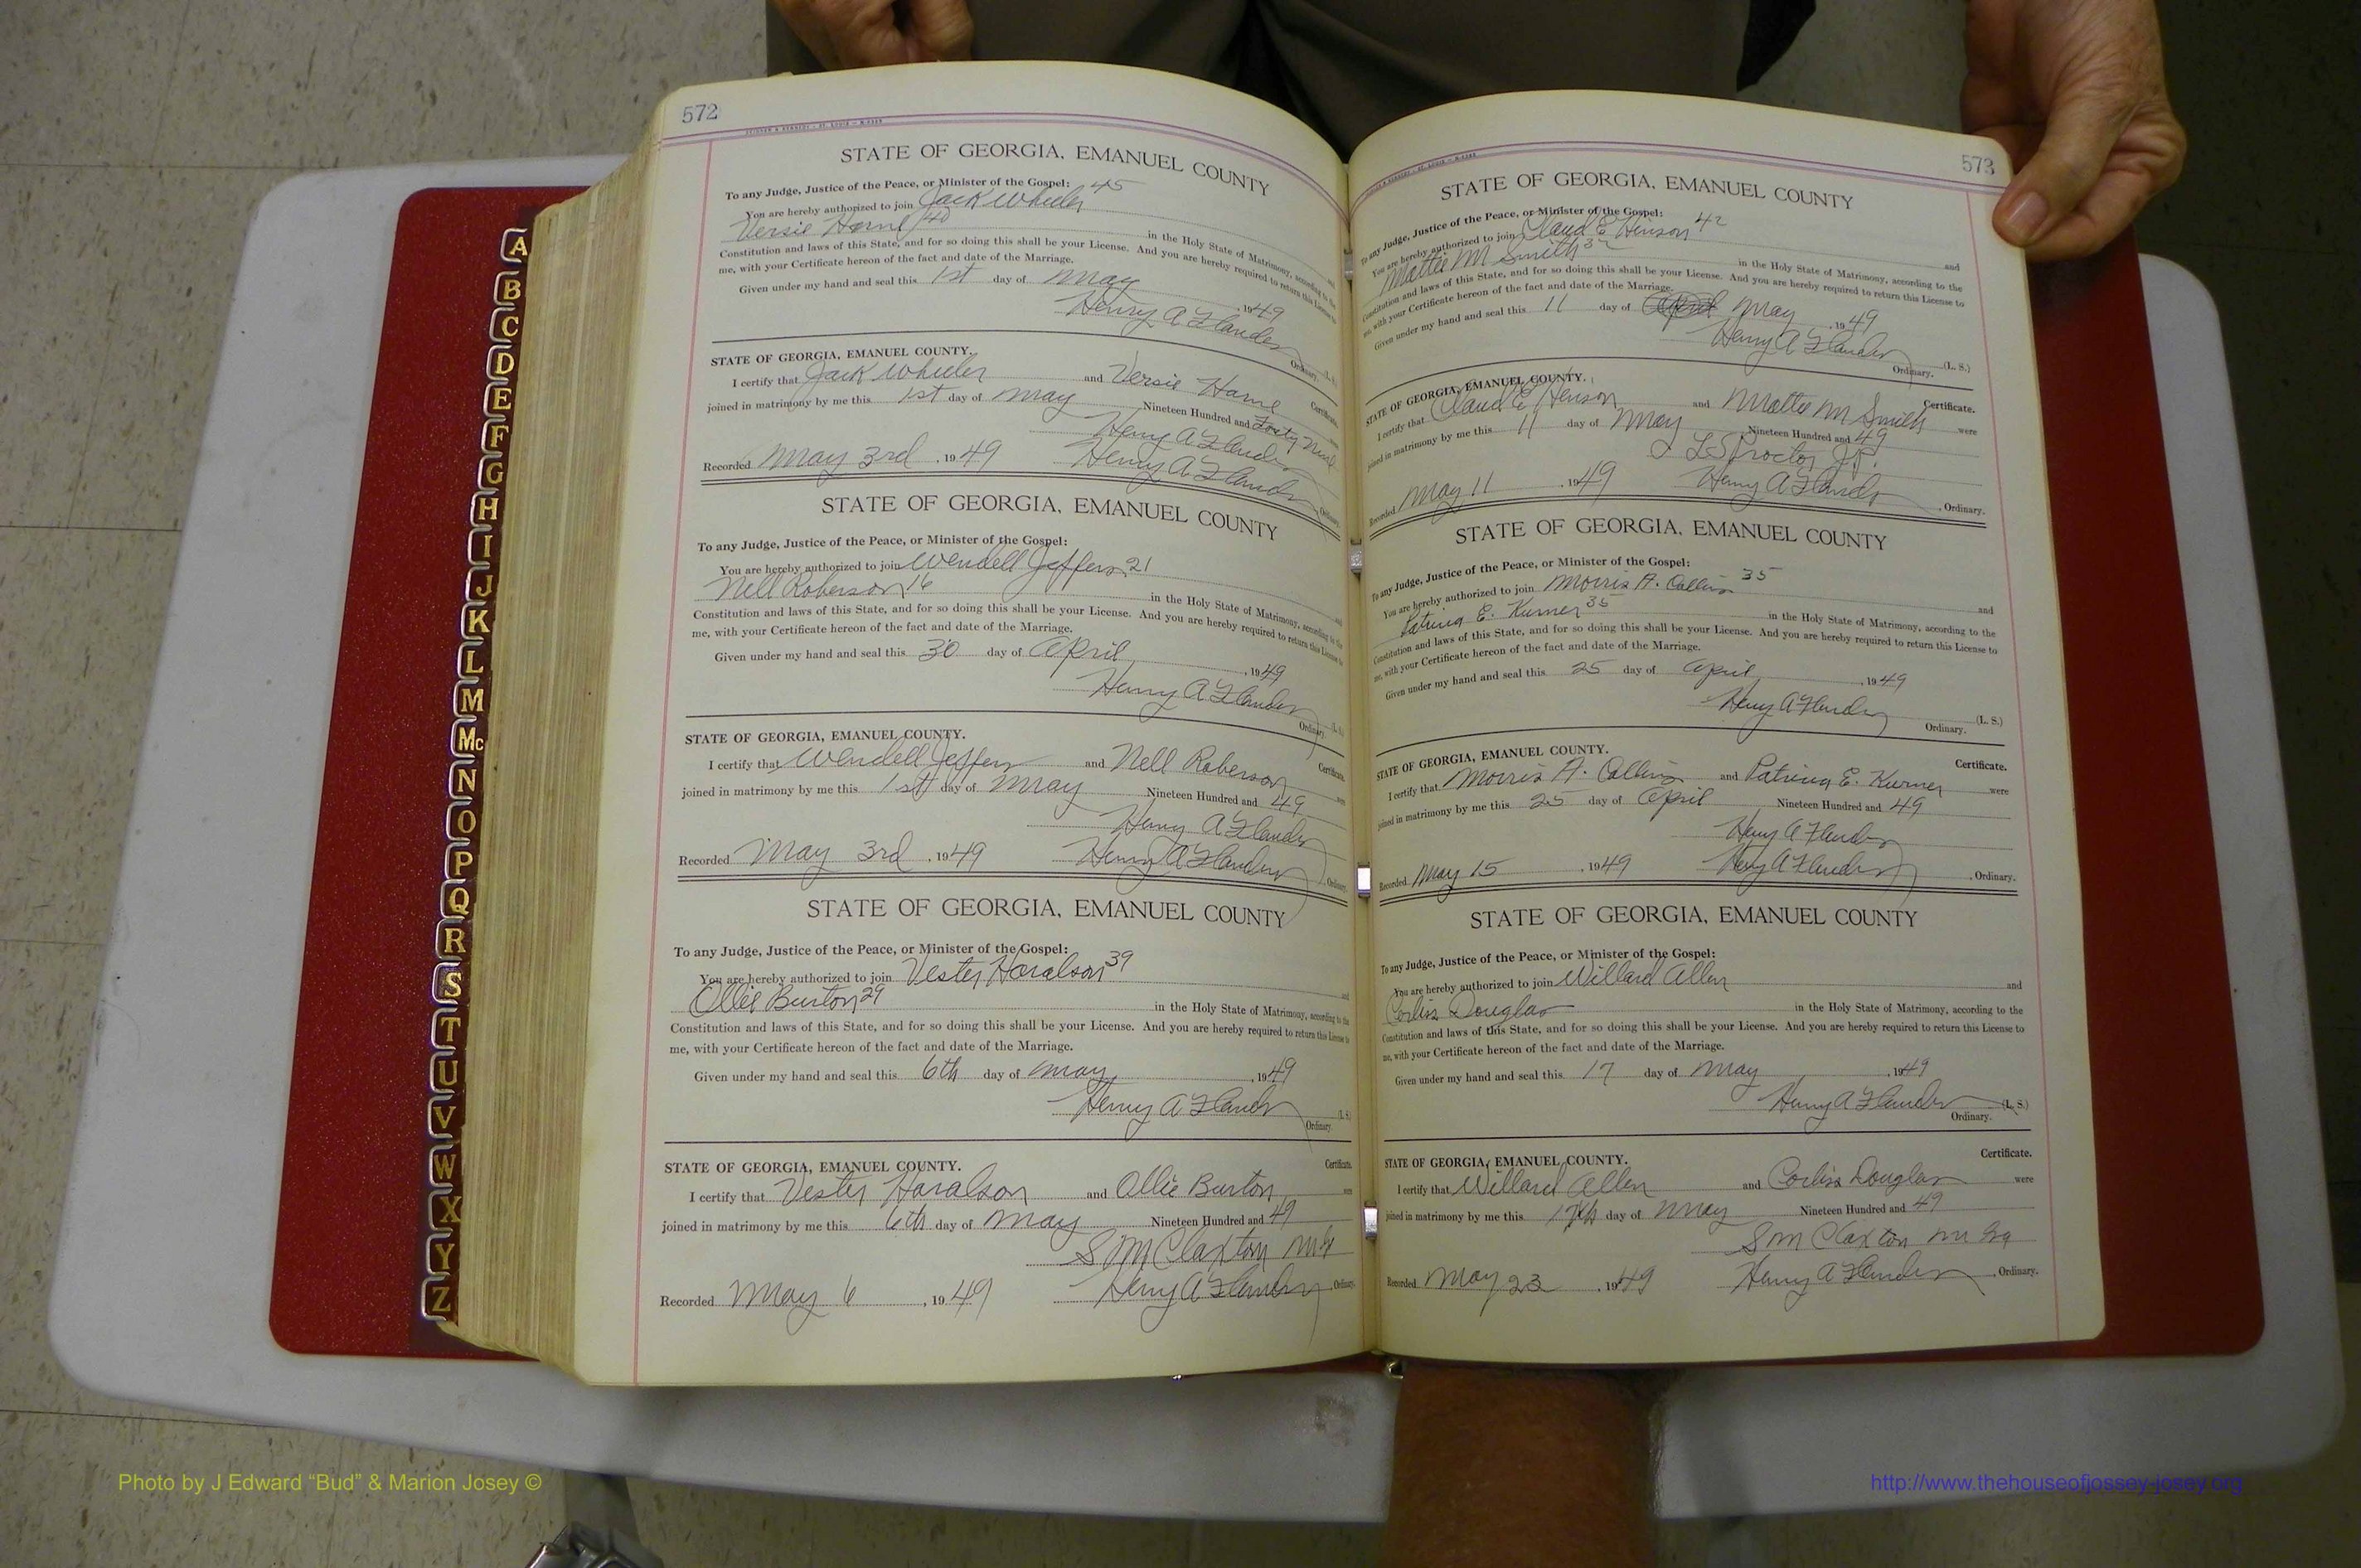 572
STATE OF GEORGIA, EMANUEL COUNTY
To any Judge, Justice of the Peace, or Minister of the Gospel:
You are hereby authorized to join Jack Wheeler 45
Versie Harne 40 in the Holy State of Matrimony, according to the
Constitution and laws of this State, and for so doing this shall be your License. And you are hereby required to return this License to
me, with your Certificate hereon of the fact and date of the Marriage.
Given under my hand and seal this 1st day of May, 1949
Henry A Flanders (L. S.)
Ordinary.
STATE OF GEORGIA, EMANUEL COUNTY. Certificate.
I certify that Jack Wheeler and Versie Harne
joined in matrimony by me this 1st day of May Nineteen Hundred and Forty Nine
Henry A Flanders
Recorded May 3rd, 1949 Henry A Flanders, Ordinary.
STATE OF GEORGIA, EMANUEL COUNTY
To any Judge, Justice of the Peace, or Minister of the Gospel:
You are hereby authorized to join Wendell Jefferson 21
Nell Roberson 16 in the Holy State of Matrimony, according to the
Constitution and laws of this State, and for so doing this shall be your License. And you are hereby required to return this License to
me, with your Certificate hereon of the fact and date of the Marriage.
Given under my hand and seal this 30 day of April, 1949
Henry A Flanders (L. S.)
Ordinary.
STATE OF GEORGIA, EMANUEL COUNTY. Certificate.
I certify that Wendell Jefferson and Nell Roberson were
joined in matrimony by me this 1st day of May Nineteen Hundred and 49
Henry A Flanders
Recorded May 3rd, 1949 Henry A Flanders, Ordinary.
STATE OF GEORGIA, EMANUEL COUNTY
To any Judge, Justice of the Peace, or Minister of the Gospel:
You are hereby authorized to join Vester Haralson 39 and
Ollie Burton 29 in the Holy State of Matrimony, according to the
Constitution and laws of this State, and for so doing this shall be your License. And you are hereby required to return this License to
me, with your Certificate hereon of the fact and date of the Marriage.
Given under my hand and seal this 6th day of May, 1949
Henry A Flanders (L. S.)
Ordinary.
STATE OF GEORGIA, EMANUEL COUNTY. Certificate.
I certify that Vester Haralson and Ollie Burton were
joined in matrimony by me this 6th day of May Nineteen Hundred and 49
S M Claxton
Recorded May 6, 1949 Henry A Flanders, Ordinary.
573
STATE OF GEORGIA, EMANUEL COUNTY
To any Judge, Justice of the Peace, or Minister of the Gospel:
You are hereby authorized to join Claud E Hinson 42 and
Mattie M Smith in the Holy State of Matrimony, according to the
Constitution and laws of this State, and for so doing this shall be your License. And you are hereby required to return this License to
me, with your Certificate hereon of the fact and date of the Marriage.
Given under my hand and seal this 11 day of April May, 1949
Henry A Flanders (L. S.)
Ordinary.
STATE OF GEORGIA, EMANUEL COUNTY. Certificate.
I certify that Claud E Henson and Mattie M Smith were
joined in matrimony by me this 11 day of May Nineteen Hundred and 49
L S Proctor J.P.
Recorded May 11, 1949 Henry A Flanders, Ordinary.
STATE OF GEORGIA, EMANUEL COUNTY
To any Judge, Justice of the Peace, or Minister of the Gospel:
You are hereby authorized to join Morris A. Collins 35 and
E. Kurner 35 in the Holy State of Matrimony, according to the
Constitution and laws of this State, and for so doing this shall be your License. And you are hereby required to return this License to
me, with your Certificate hereon of the fact and date of the Marriage.
Given under my hand and seal this 25 day of April, 1949
Henry A Flanders (L. S.)
Ordinary.
STATE OF GEORGIA, EMANUEL COUNTY. Certificate.
I certify that Morris A. Collins and E. Kurner were
joined in matrimony by me this 25 day of April Nineteen Hundred and 49
Henry A Flanders
Recorded May 15, 1949 Henry A Flanders, Ordinary.
STATE OF GEORGIA, EMANUEL COUNTY
To any Judge, Justice of the Peace, or Minister of the Gospel:
You are hereby authorized to join Willard Allen and
Corliss Douglas in the Holy State of Matrimony, according to the
Constitution and laws of this State, and for so doing this shall be your License. And you are hereby required to return this License to
me, with your Certificate hereon of the fact and date of the Marriage.
Given under my hand and seal this 17 day of May, 1949
Henry A Flanders (L. S.)
Ordinary.
STATE OF GEORGIA, EMANUEL COUNTY. Certificate.
I certify that Willard Allen and Corliss Douglas were
joined in matrimony by me this 17th day of May Nineteen Hundred and 49
S M Claxton
Recorded May 23, 1949 Henry A Flanders, Ordinary.
A
B
C
D
E
F
G
H
I
J
K
L
M
Mc
N
O
P
Q
R
S
T
U
V
W
X
Y
Z
Photo by J Edward “Bud” & Marion Josey ©
http://www.thehouseofjossey-josey.org